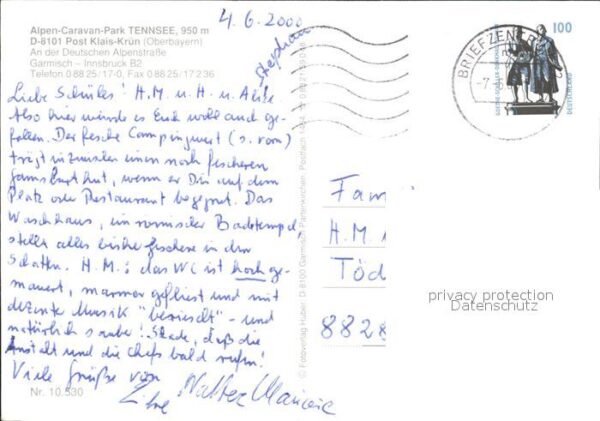 4.6.2000
Alpen-Caravan-Park TENNSEE, 950 m
D-8101 Post Klais-Krün (Oberbayern)
An der Deutschen Alpenstraße
Garmisch – Innsbruck B2
Telefon 08825/17-0, Fax 08825/17236
Stephan
Liebe Schüles! H.M. u. H. u.
Also hier würde es Euch wohl auch ge-
fallen. Der fesche Campingwirt (s. vorn)
trägt inzwischen einen noch fescheren
Gamsbarthut, wenn er Dir auf dem
Platz oder Restaurant begegnet. Das
Waschhaus, ein römischer Badetempel,
stellt alles bisher in den
Schatten. H.M.: das WC ist hoch ge-
mauert, marmor gefliest und mit
dezenter Musik "berieselt" - und
natürlich sauber! Schade, daß die
Anstalt und die Chefs bald rufen!
Viele Grüße von
Eure Walter
Nr. 10.530
© Fotoverlag Huber, D-8100 Garmisch-Partenkirchen, Postfach
BRIEFZEN
100
GOETHE-SCHILLER-DENKMAL
DEUTSCHLAND
Fam
H.M.
Töd
8828
privacy protection
Datenschutz